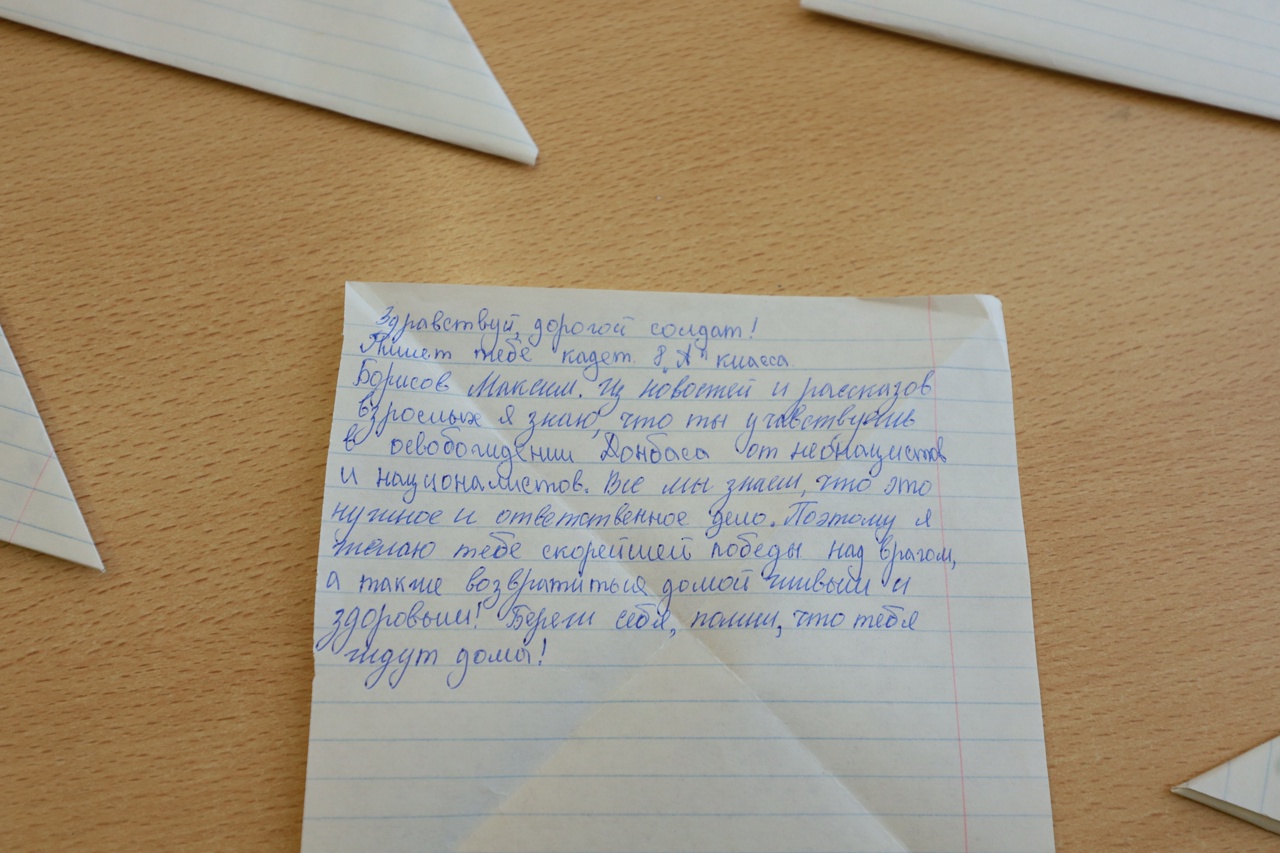 Здравствуй, дорогой солдат!
Пишет тебе кадет 8 "А" класса
Борисов Максим. Из новостей и рассказов
взрослых я знаю, что ты учавствуешь
в освобождении Донбаса от неонацистов
и националистов. Все мы знаем, что это
нужное и ответственное дело. Поэтому я
желаю тебе скорейшей победы над врагом,
а также возвратиться домой живым и
здоровым! Береги себя, помни, что тебя
ждут дома!